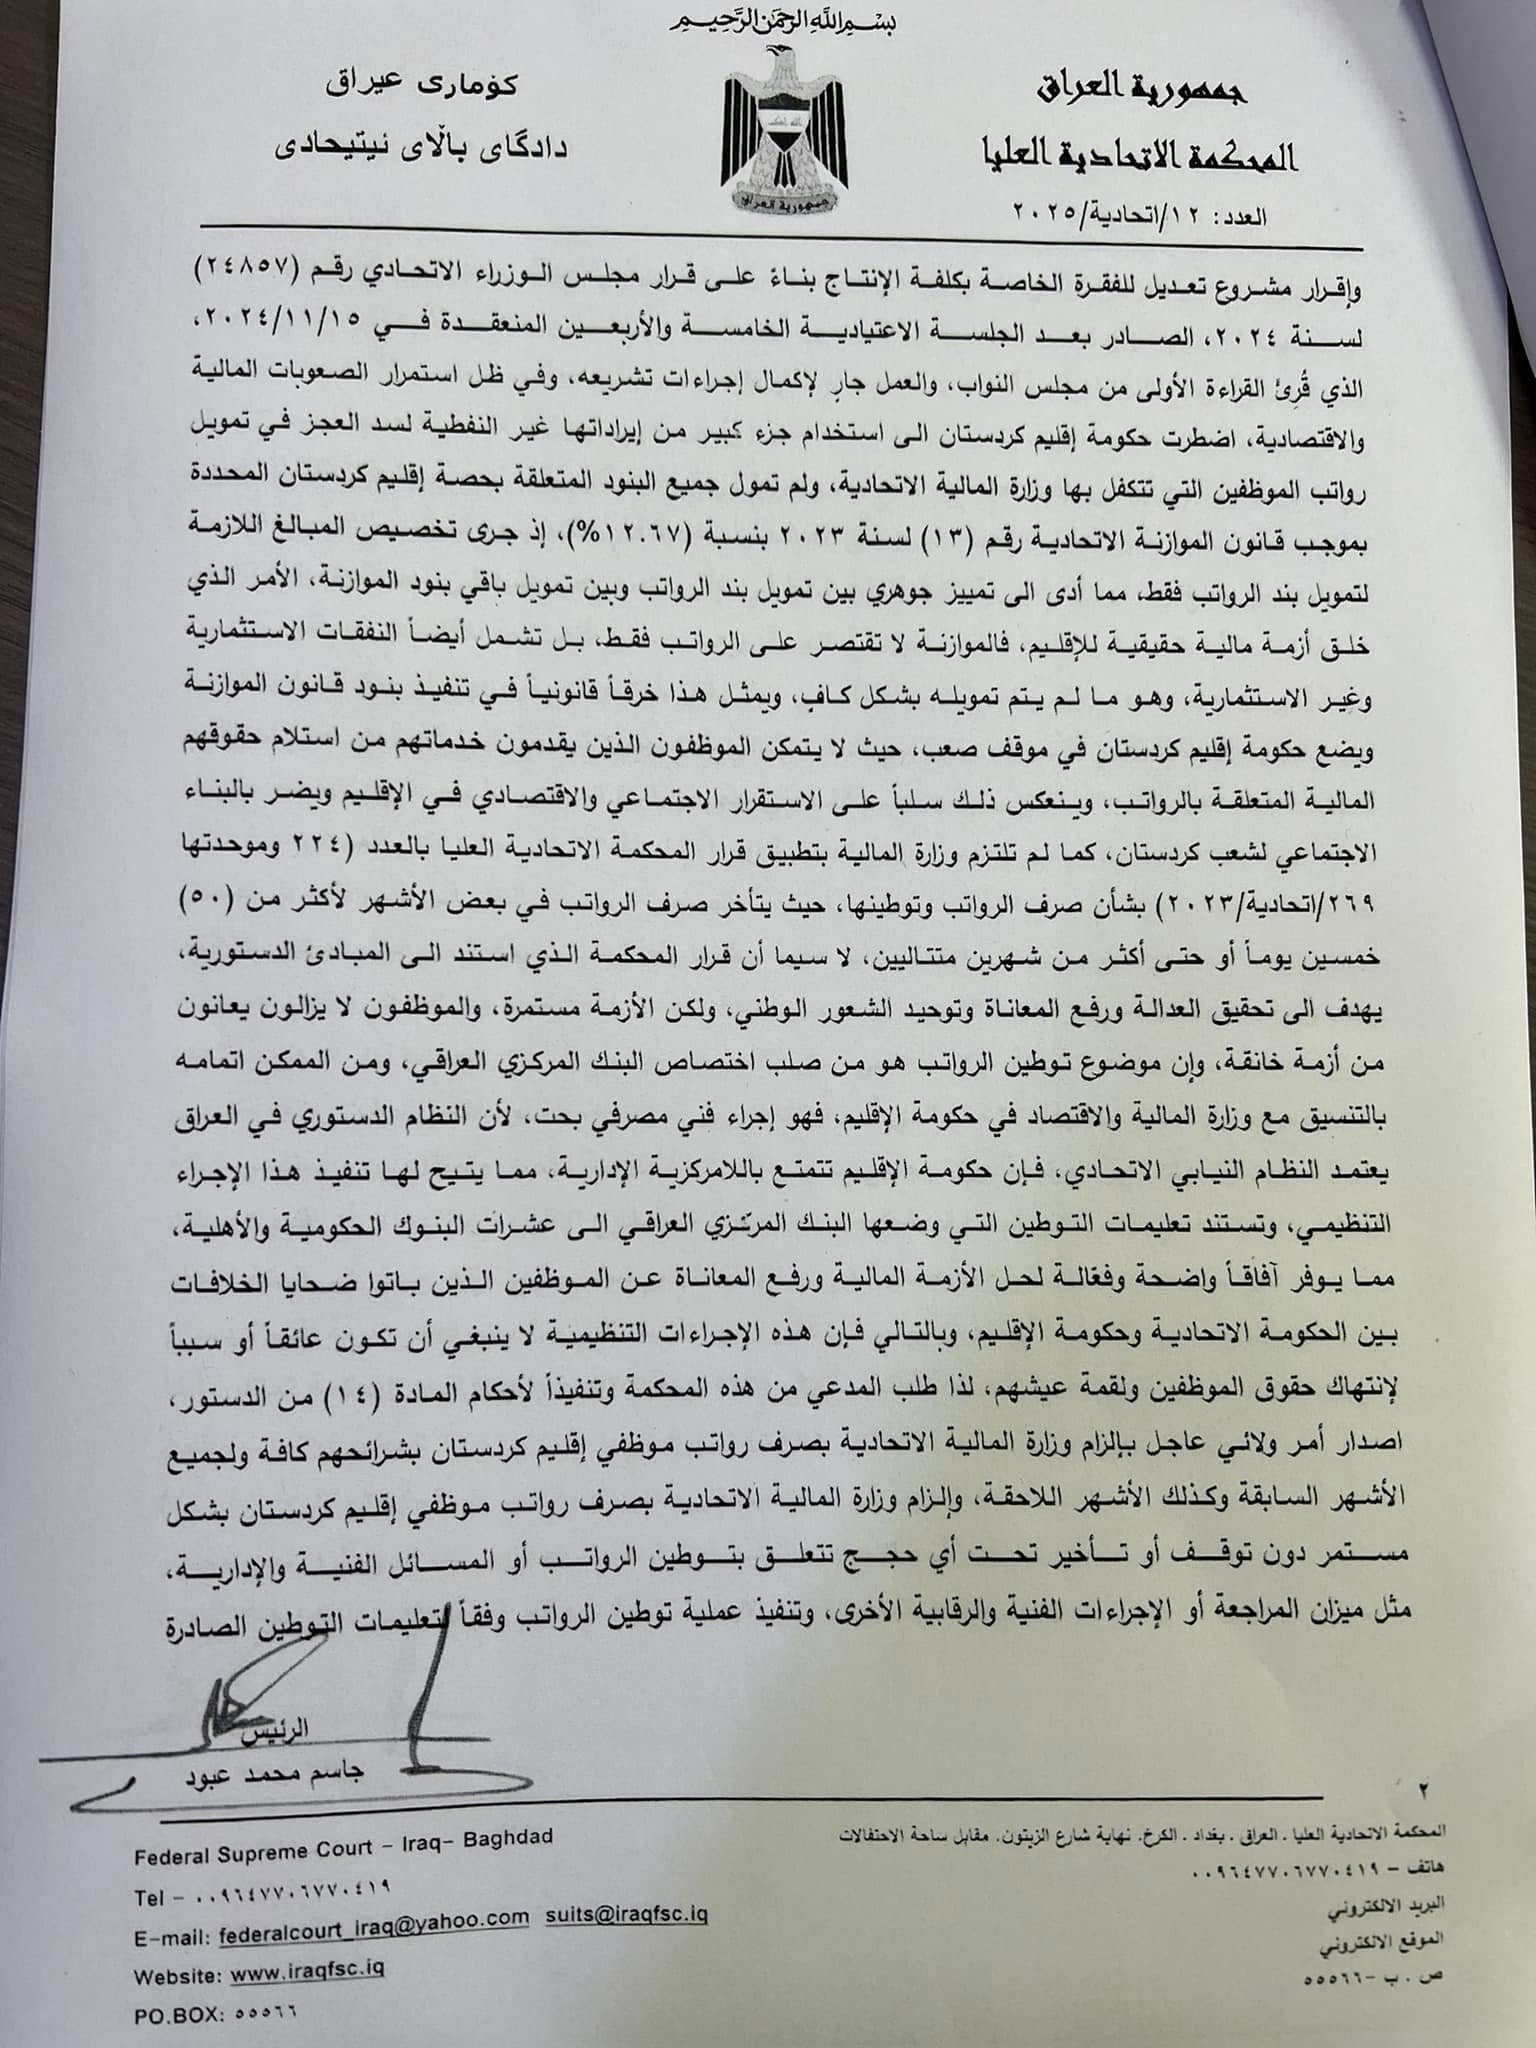 بسم الله الرحمن الرحيم
جمهورية العراق
المحكمة الاتحادية العليا
العدد: ١٢/اتحادية/٢٠٢٥
كۆماری عیراق
دادگای باڵای ئیتیحادی
جمهورية العراق
وإقرار مشروع تعديل للفقرة الخاصة بكلفة الإنتاج بناءً على قرار مجلس الوزراء الاتحادي رقم (٢٤٨٥٧)
لسنة ٢٠٢٤، الصادر بعد الجلسة الاعتيادية الخامسة والأربعين المنعقدة في ٢٠٢٤/١١/١٥،
الذي قُرِئ القراءة الأولى من مجلس النواب، والعمل جارٍ لإكمال إجراءات تشريعه، وفي ظل استمرار الصعوبات المالية
والاقتصادية، اضطرت حكومة إقليم كردستان الى استخدام جزء كبير من إيراداتها غير النفطية لسد العجز في تمويل
رواتب الموظفين التي تتكفل بها وزارة المالية الاتحادية، ولم تمول جميع البنود المتعلقة بحصة إقليم كردستان المحددة
بموجب قانون الموازنة الاتحادية رقم (١٣) لسنة ٢٠٢٣ بنسبة (١٢.٦٧%)، إذ جرى تخصيص المبالغ اللازمة
لتمويل بند الرواتب فقط، مما أدى الى تمييز جوهري بين تمويل بند الرواتب وبين تمويل باقي بنود الموازنة، الأمر الذي
خلق أزمة مالية حقيقية للإقليم، فالموازنة لا تقتصر على الرواتب فقط، بل تشمل أيضاً النفقات الاستثمارية
وغير الاستثمارية، وهو ما لم يتم تمويله بشكل كافٍ، ويمثل هذا خرقاً قانونياً في تنفيذ بنود قانون الموازنة
ويضع حكومة إقليم كردستان في موقف صعب، حيث لا يتمكن الموظفون الذين يقدمون خدماتهم من استلام حقوقهم
المالية المتعلقة بالرواتب، وينعكس ذلك سلباً على الاستقرار الاجتماعي والاقتصادي في الإقليم ويضر بالبناء
الاجتماعي لشعب كردستان، كما لم تلتزم وزارة المالية بتطبيق قرار المحكمة الاتحادية العليا بالعدد (٢٢٤ وموحدتها
٢٦٩/اتحادية/٢٠٢٣) بشأن صرف الرواتب وتوطينها، حيث يتأخر صرف الرواتب في بعض الأشهر لأكثر من (٥٠)
خمسين يوماً أو حتى أكثر من شهرين متتاليين، لا سيما أن قرار المحكمة الذي استند الى المبادئ الدستورية،
يهدف الى تحقيق العدالة ورفع المعاناة وتوحيد الشعور الوطني، ولكن الأزمة مستمرة، والموظفون لا يزالون يعانون
من أزمة خانقة، وإن موضوع توطين الرواتب هو من صلب اختصاص البنك المركزي العراقي، ومن الممكن اتمامه
بالتنسيق مع وزارة المالية والاقتصاد في حكومة الإقليم، فهو إجراء فني مصرفي بحت، لأن النظام الدستوري في العراق
يعتمد النظام النيابي الاتحادي، فإن حكومة الإقليم تتمتع باللامركزية الإدارية، مما يتيح لها تنفيذ هذا الإجراء
التنظيمي، وتستند تعليمات التوطين التي وضعها البنك المركزي العراقي الى عشرات البنوك الحكومية والأهلية،
مما يوفر آفاقاً واضحة وفعّالة لحل الأزمة المالية ورفع المعاناة عن الموظفين الذين باتوا ضحايا الخلافات
بين الحكومة الاتحادية وحكومة الإقليم، وبالتالي فإن هذه الإجراءات التنظيمية لا ينبغي أن تكون عائقاً أو سبباً
لإنتهاك حقوق الموظفين ولقمة عيشهم، لذا طلب المدعي من هذه المحكمة وتنفيذاً لأحكام المادة (١٤) من الدستور،
اصدار أمر ولائي عاجل بإلزام وزارة المالية الاتحادية بصرف رواتب موظفي إقليم كردستان بشرائحهم كافة ولجميع
الأشهر السابقة وكذلك الأشهر اللاحقة، وإلزام وزارة المالية الاتحادية بصرف رواتب موظفي إقليم كردستان بشكل
مستمر دون توقف أو تأخير تحت أي حجج تتعلق بتوطين الرواتب أو المسائل الفنية والإدارية،
مثل ميزان المراجعة أو الإجراءات الفنية والرقابية الأخرى، وتنفيذ عملية توطين الرواتب وفقاً لتعليمات التوطين الصادرة
الرئيس
جاسم محمد عبود
٢
المحكمة الاتحادية العليا . العراق . بغداد . الكرخ. نهاية شارع الزيتون. مقابل ساحة الاحتفالات
هاتف – ٠٠٩٦٤٧٧٠٦٧٧٠٤١٩
البريد الالكتروني
الموقع الالكتروني
ص . ب -٥٥٥٦٦
Federal Supreme Court – Iraq– Baghdad
Tel – ٠٠٩٦٤٧٧٠٦٧٧٠٤١٩
E-mail: federalcourt_iraq@yahoo.com suits@iraqfsc.iq
Website: www.iraqfsc.iq
PO.BOX: ٥٥٥٦٦